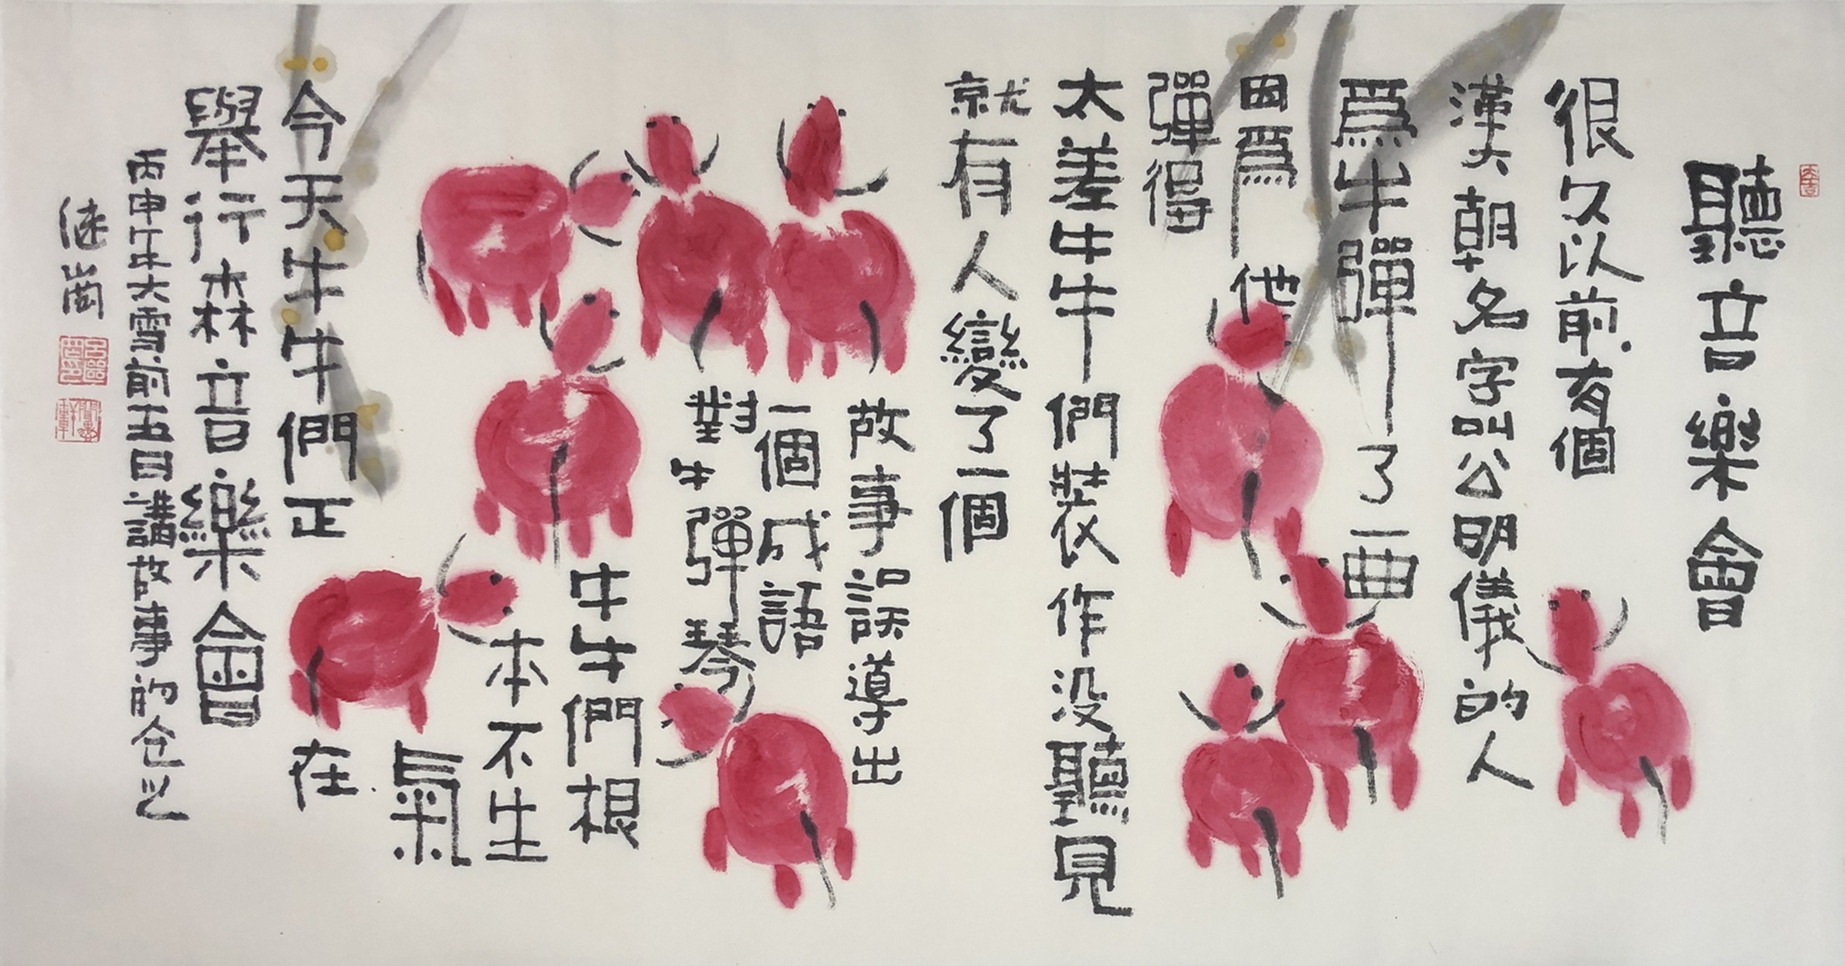 聽音樂會
很久以前有個
漢朝名字叫公明儀的人
爲牛彈了一曲
因爲他
彈得
太差牛牛們裝作没聽見
就有人變了一個
故事誤導出
一個成語
對牛彈琴
牛牛們根
本不生
氣
在
今天牛牛們正
舉行森林音樂會
丙申年大雪前五日講故事的仓